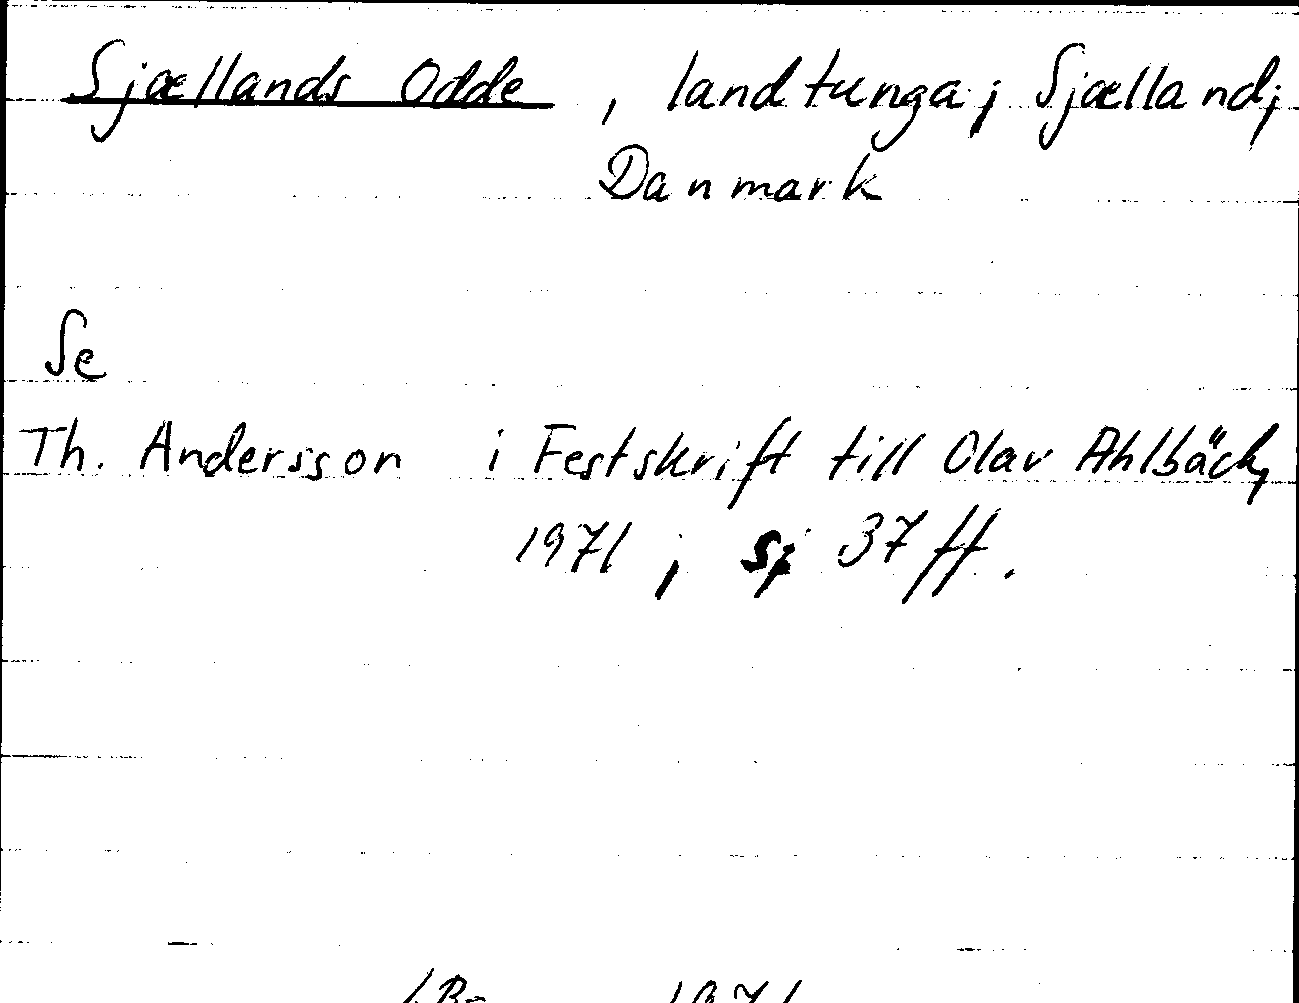 Sjællands Odde, landtunga; Sjælland;
Danmark
Se
Th. Andersson i Festskrift till Olav Ahlbäck,
1971, s. 37 ff.